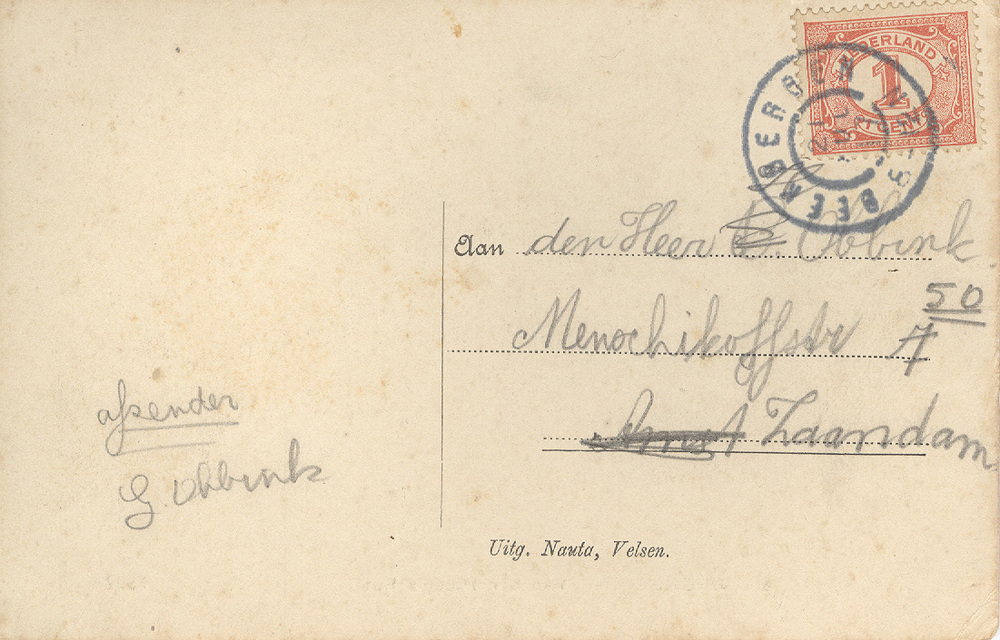 NEDERLAND
1
CENT
BEEMBERGEN
Aan den Heer B. Obbink
50
Menschikoffstr 7
Zaandam
afzender
G. Obbink
Uitg. Nauta, Velsen.